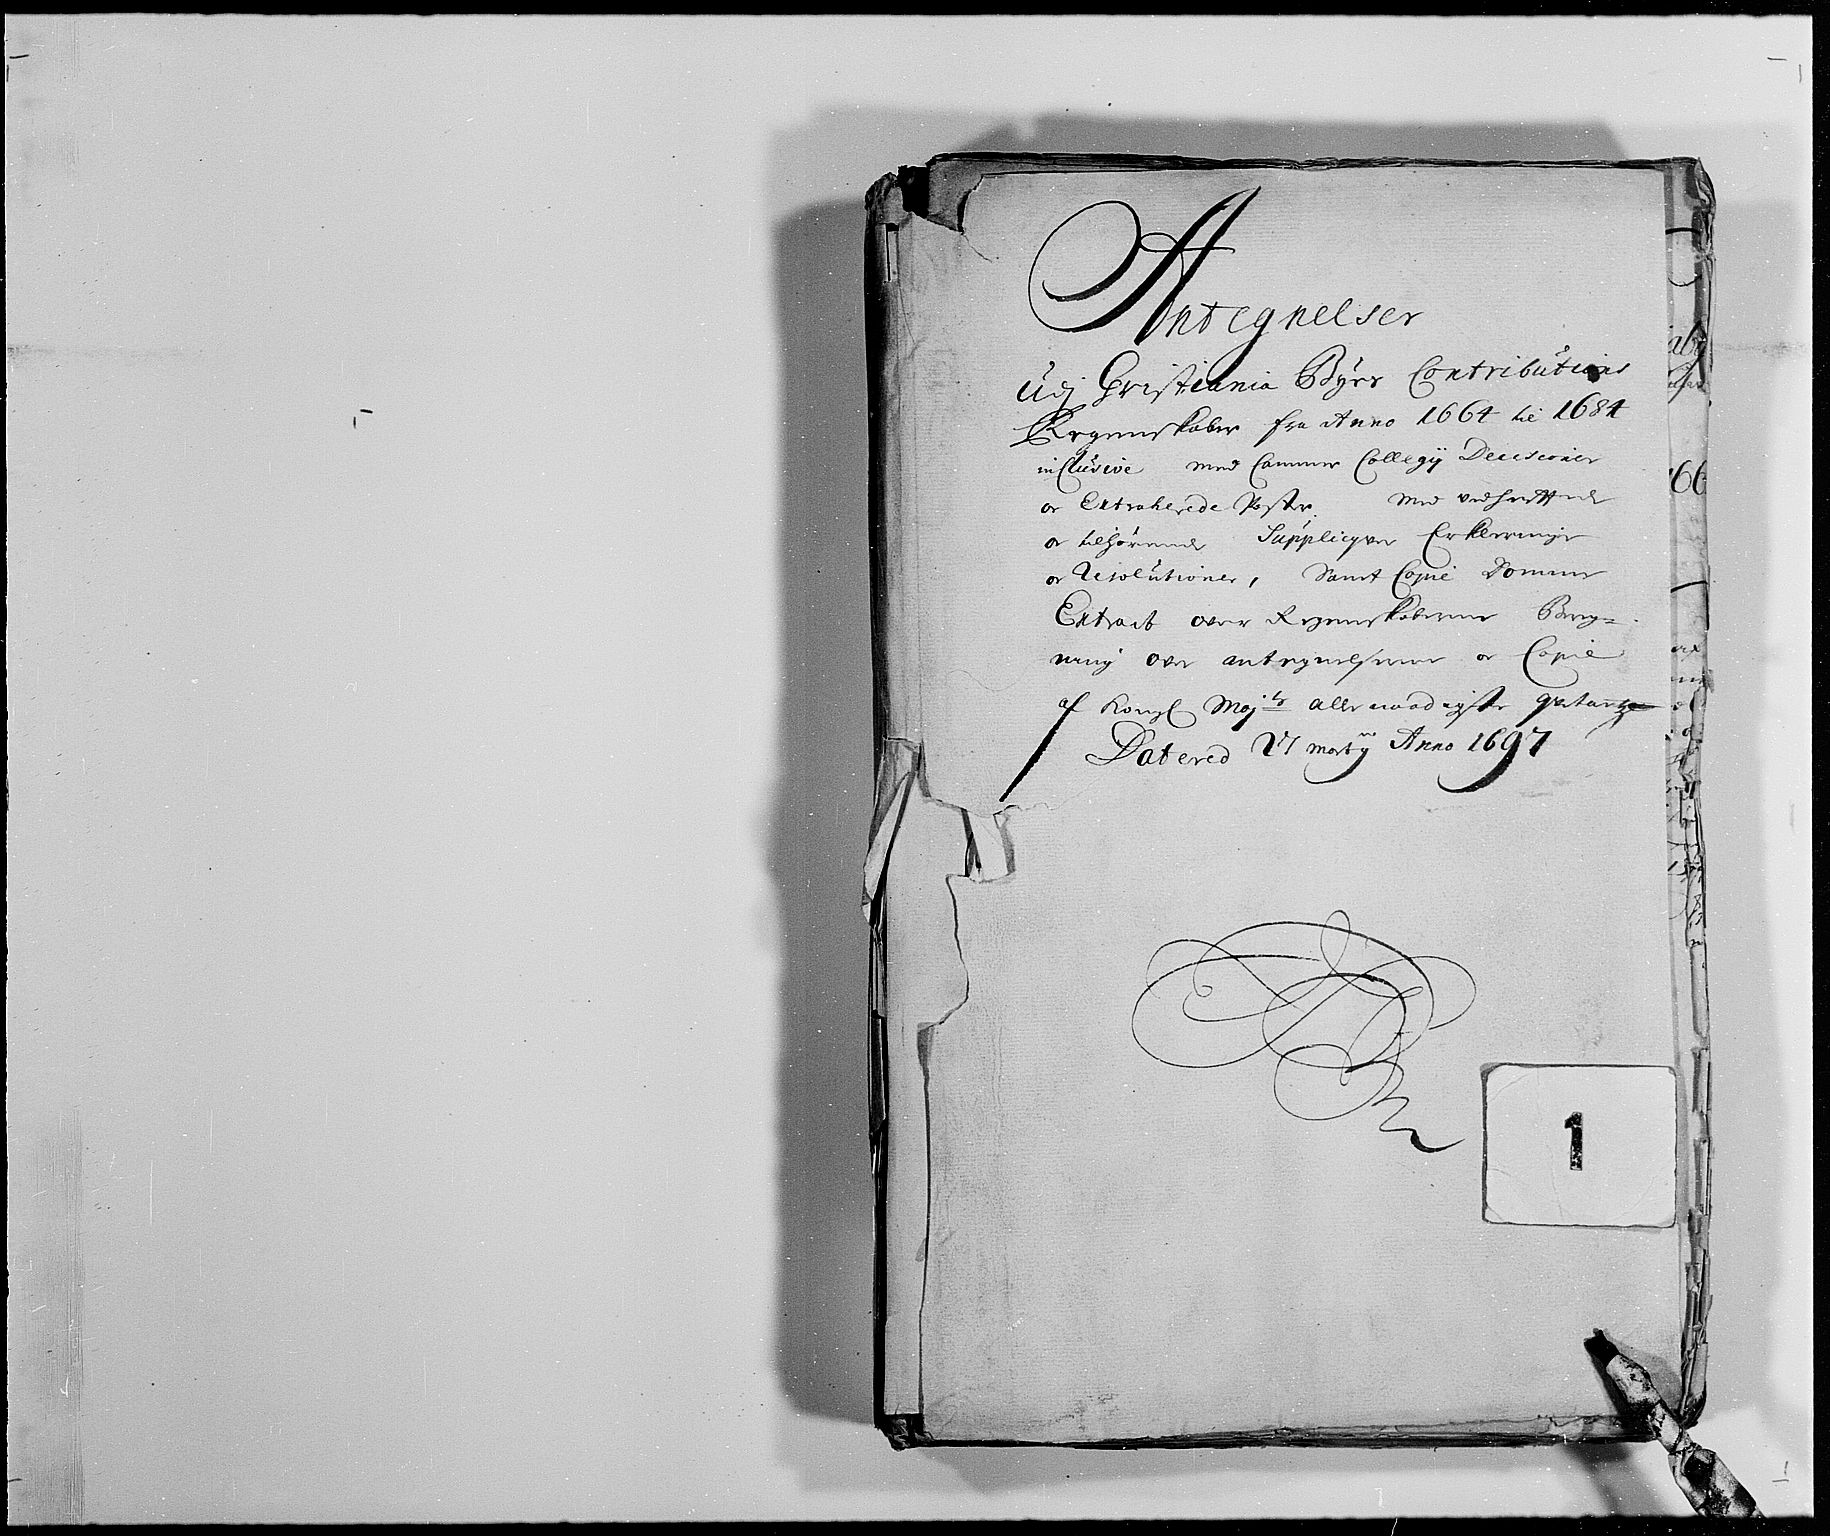 Antegnelser
Udj Christiania Byes Contributions
Regenskaber fra Anno 1664 til 1684
inclusive med Cammer Collegij Decisioner
or Extraherede Poster. Med vedheftede
or tilhørende Suppliqver Erklerringer
or Resolutioner, Samt Copie Domme
Extract over Regenskaberne Bereg=
ning over antegnelserne or Copie
af Kongl Maj:ts allernaadigste
Datered 27 martij Anno 1697
1